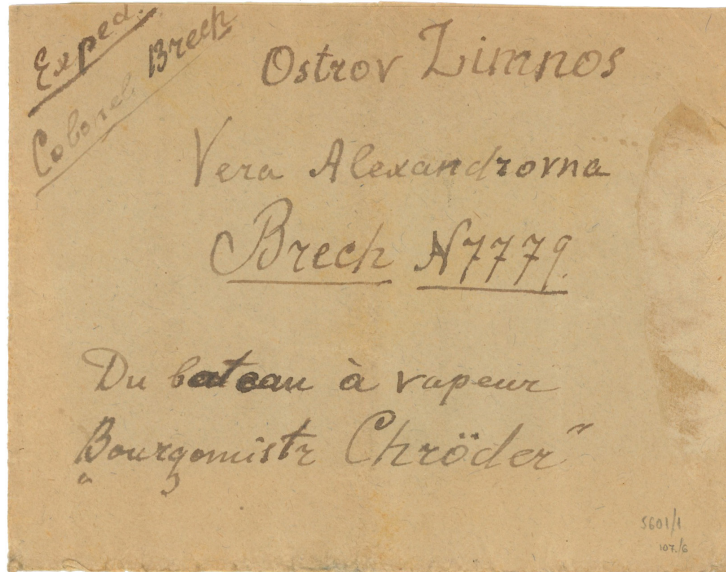 Exped.
Colonel Brech
Ostrov Limnos
Vera Alexandrovna
Brech N7779.
Du bateau à vapeur
„Bourgomistr Chröder"
5601/1
107./6